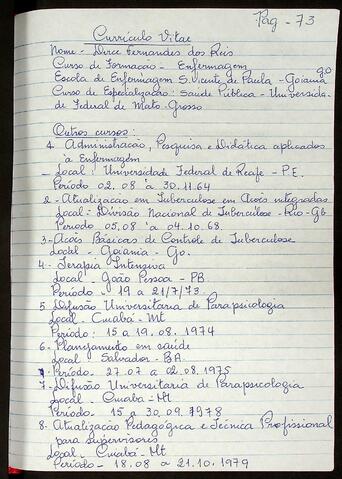 Pág - 73
Currículo Vitae
Nome - Dirce Fernandes dos Reis
Curso de Formação - Enfermagem
Escola de Enfermagem S. Vicente de Paula - Goiania
go
Curso de Especialização: Saúde Pública - Universida-
de Federal de Mato-Grosso
Outros cursos:
1. Administração, Pesquisa e Didática aplicados
à Enfermagem
- Local: Universidade Federal de Recife - P.E.
Período 02.08 à 30.11.64
2 - Atualização em Tuberculose em Ações integradas
Local: Divisão Nacional de Tuberculose - Rio - Gb
Período 05.08 à 04.10.68
3 - Ações Básicas de Controle de Tuberculose
Local - Goiania - Go.
4 - Terapia Intensiva
Local - João Pessoa - PB
Período - 19 a 21/7/73
5. Difusão Universitaria de Parapsicologia
Local - Cuabá - Mt
Período: 15 a 19.08.1974
6 - Planejamento em saúde
Local Salvador - BA
Período. 27.07 a 02.08.1975
7 - Difusão Universitaria de Parapsicologia
Local - Cuiaba - Mt
Período. 15 a 30.09.1978
8 - Atualização Pedagógica e Técnica Profissional
para supervisores
Local - Cuiabá - Mt
Período - 18.08 a 21.10.1979